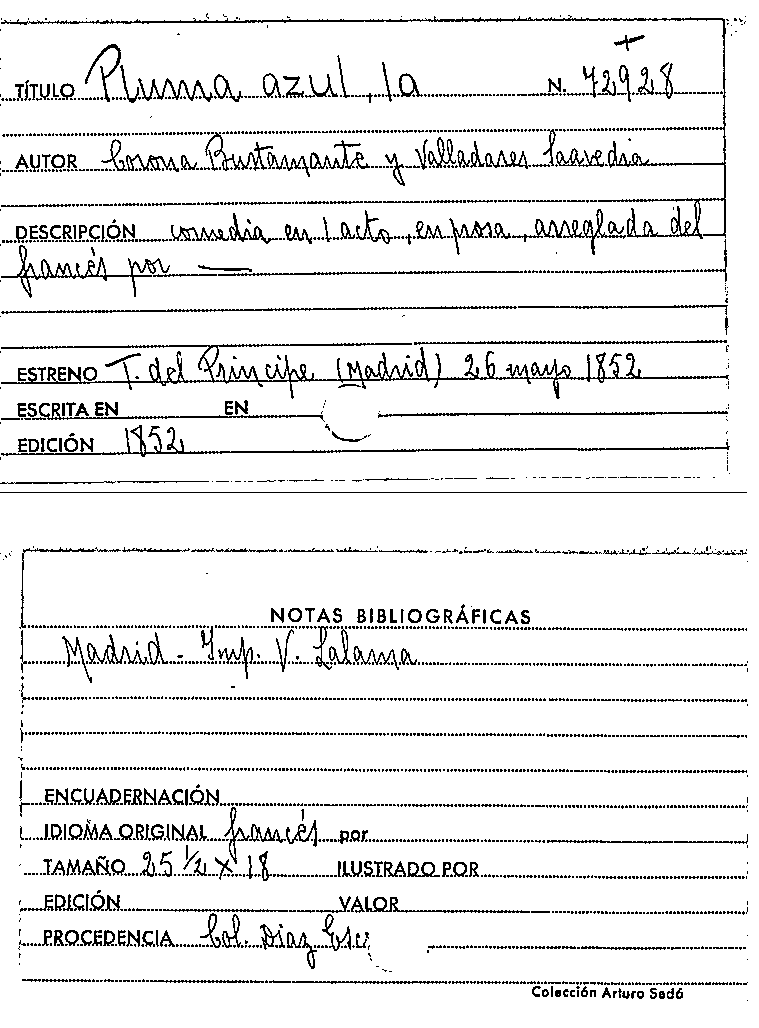 +
TÍTULO Pluma azul, la N. 72928
AUTOR Corona Bustamante y Valladares Saavedra
DESCRIPCIÓN comedia en 1 acto, en prosa, arreglada del
francés por —
ESTRENO T. del Príncipe (Madrid) 26 mayo 1852
ESCRITA EN EN
EDICIÓN 1852
NOTAS BIBLIOGRÁFICAS
Madrid - Imp. V. Lalama
ENCUADERNACIÓN
IDIOMA ORIGINAL francés por
TAMAÑO 25 1/2 X 18 ILUSTRADO POR
EDICIÓN VALOR
PROCEDENCIA Col. Díaz Esc
Colección Arturo Sedó